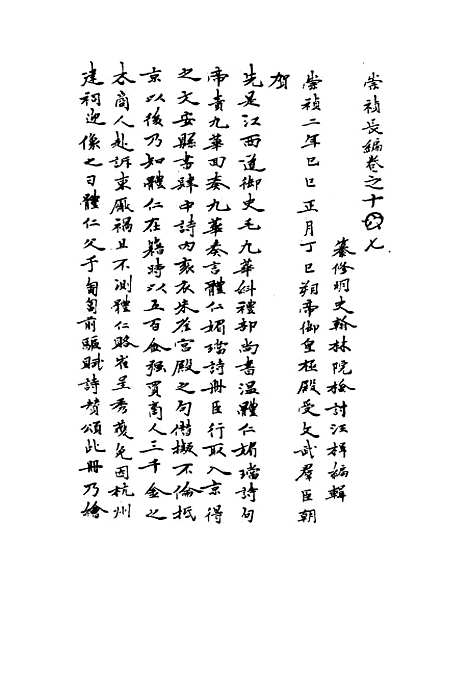 崇禎長編卷之十七
纂修明史翰林院檢討汪楫編輯
崇禎二年己巳正月丁巳朔帝御皇極殿受文武羣臣朝
賀
先是江西道御史毛九華糾禮部尚書溫體仁媚璫詩句
帝責九華回奏九華奏言體仁媚璫詩冊臣行取入京得
之文安縣書肆中詩內有袞衣朱芾宮殿之句僭擬不倫抵
京以後乃知體仁在籍時以五百金强買商人三千金之
木商人赴訴東厰禍且不測體仁賂崔呈秀獲免因杭州
建祠迎像之日體仁父子匍匐前驅賦詩贊頌此冊乃繪